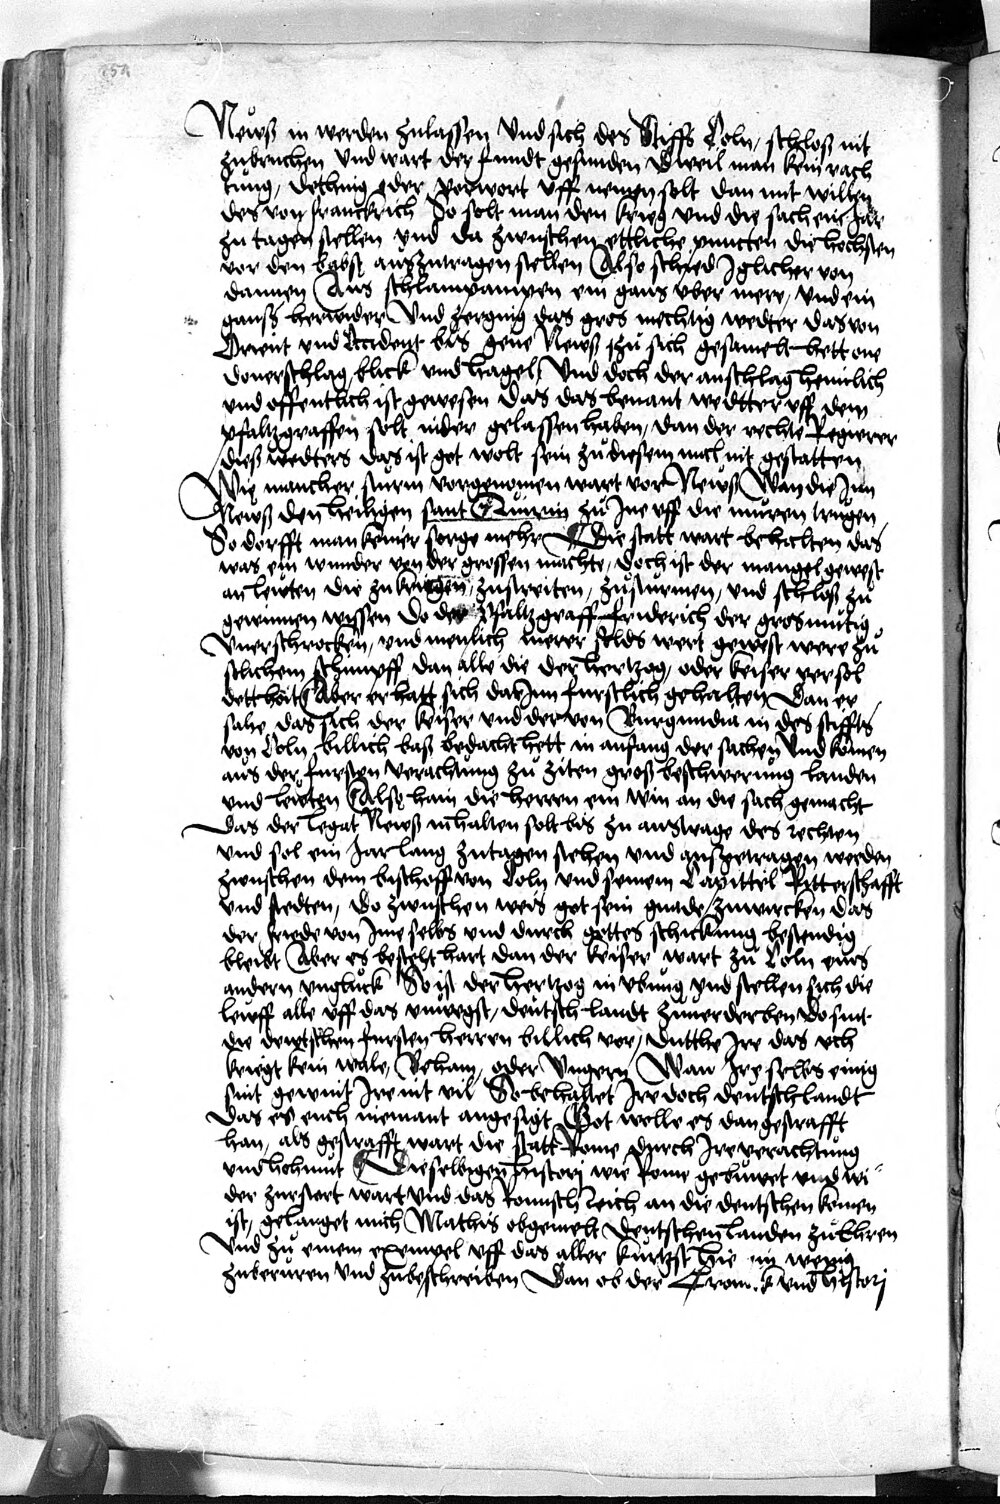 254
Newß in werden zulassen Und sich des Stiffs Coln, schloß nit
zubruchen Und wart der fundt gefunden Dweil man kein rach
tung, dething oder vorwort uff nemen solt dan mit willen
des von franckrich So solt man den krieg und die sach ein Jar
zu tagen stellen und da zwuschen ettliche puncten die hochsten
vor den babst ußzutragen stellen Also schied Iglicher von
dannen Aus schlampampen ein gans uber mere, und ein
ganß herwider Und zerging das gros mechtig wedter das von
Orient und Occident bis gene Newß zu sich gesamelt hett one
donerschlag blick und hagel, Und doch der anschlag heimlich
und offentlich ist gewesen Das das benant wedtter uff dem
pfaltzgraffen solt nider gelassen haben, dan der rechte Regirer
dieß wedters das ist got wolt sein zu diesem mal nit gestatten
Wie mancher sturm vorgenomen wart vor Newß Wan die Inn
Newß den heiligen sant Quirin zu Ine uff die muren trugen
So dorfft man keiner sorge mehr Die statt wart behalten das
was ein wunder von der grossen machte, doch ist der mangel gewest
an lewten die zu kriegen, zustreiten, zusturmen, und schloß zu
gewinnen wissen Do der Pfaltzgraff friderich der grosmutig
Unerschrocken, und menlich merer solds wert gewest were zu
sollichem schimpff dan alle die der hertzog, oder keiser versol
dett hett Aber er hatt sich darInn furstlich gehalten Dan er
sahe das sich der keiser und der von Burgundia in des stiffts
von Coln billich baß bedacht hett in anfang der sachen Und komen
aus der fursten verachtung zu ziten groß beschwerung landen
und lewten Also hain die herren ein win an die sach gemacht
Das der legat Newß inhalten solt bis zu ustrage des rechten
und sol ein Jar lang zutagen stehen und ußgetragen werden
zwuschen dem bischoff von Coln und seinem Capittel Ritterschafft
und stedten, Do zwuschen weis got sein gnade zuwircken das
der friede von Ime selbs und durch gottes schickung bestendig
bleibt Aber es besteht hart dan der keiser wart zu Coln eins
andern ungluck So ist der hertzog in ubung und stellen sich die
leuff alle uff das unwegst, deutsch landt zuverderben Do sint
die dewtschen fursten herren billich vor, Dutthe Ire das uch
kriegt kein wale, Beham, oder Ungern Wan Ire selbs einig
sint gewint Ire nit vil So behaltet Ire doch deutschlandt
das es euch niemant angesigt Got welle es dan gestrafft
han, als gestrafft wart die statt Rome durch Ire verachtung
und hohmut Dieselbigen histori wie Rome gebuwet und wi
der zurstort wart Und das Romisch reich an die deutschen komen
ist, gelanget mich Mathis obgemelt deutschen landen zu Ehren
Und zu einem exempel uff das aller kurtzst hie ein wenig
zuberuren und zubeschreiben Dan ob der Cronik und histori